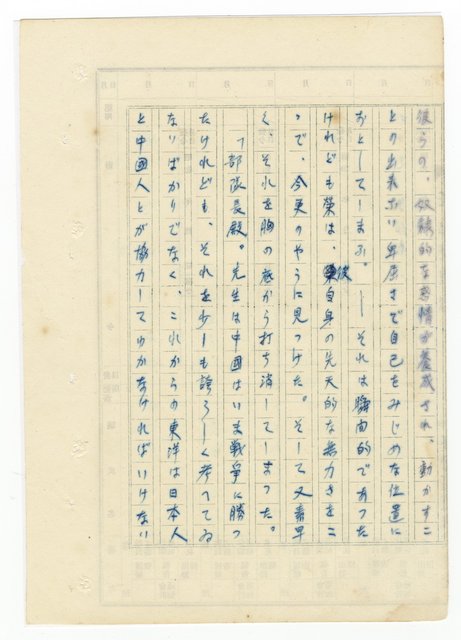 彼らの、奴隷的な感情が養成され、動かすこ
との出来ない卑屈さで自己をみじめな位置に
おとしてしまふ。――それは瞬間的であつた
けれども榮は、彼自身の先天的な無力さをこ
ゝで、今更のやうに見つけた。そして又素早
く、それを胸の底から打ち消してしまつた。
「部隊長殿。先生は中國はいま戦爭に勝つ
たけれども、それを少しも誇らしく考へてゐ
ないばかりでなく、これからの東洋は日本人
と中國人とが協力してゆかなければいけない